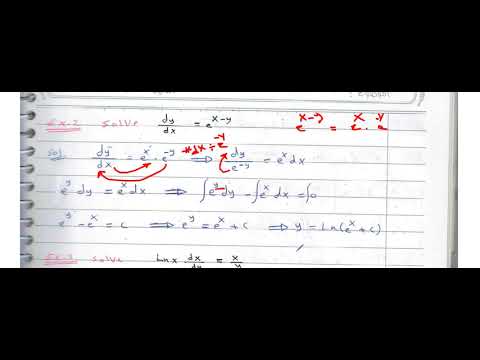 Ex-2 solve dy/dx = e^(x-y)
e^(x-y) = e^x . e^-y
sol dy/dx = e^x . e^-y *dx ÷ e^-y ⟹ dy/e^-y = e^x dx
e^y dy = e^x dx ⟹ ∫e^y dy - ∫e^x dx = ∫0
e^y - e^x = c ⟹ e^y = e^x + c ⟹ y = Ln(e^x + c)
solve Lnx . dx/dy = x/y